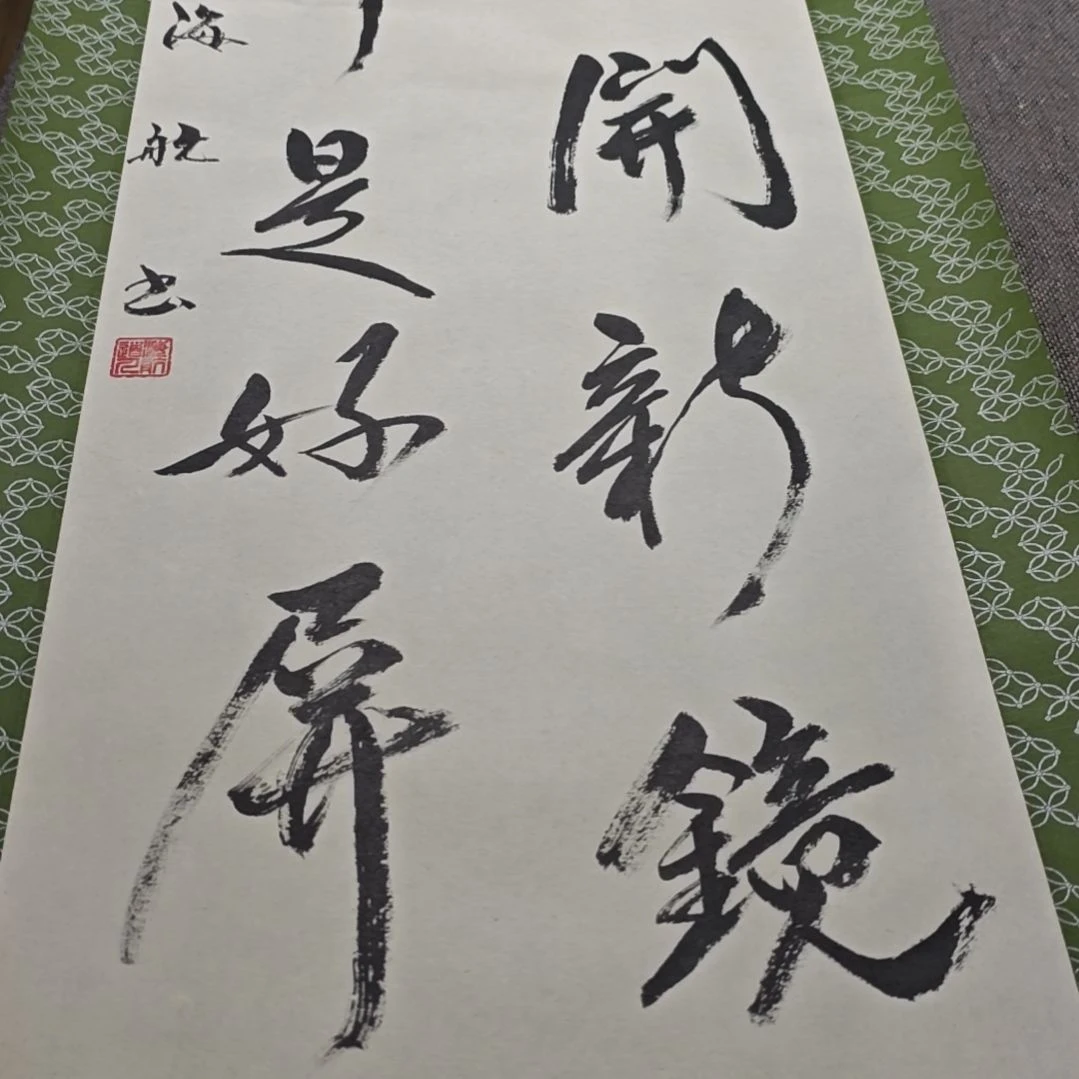 開新鏡
是好屏
海航書